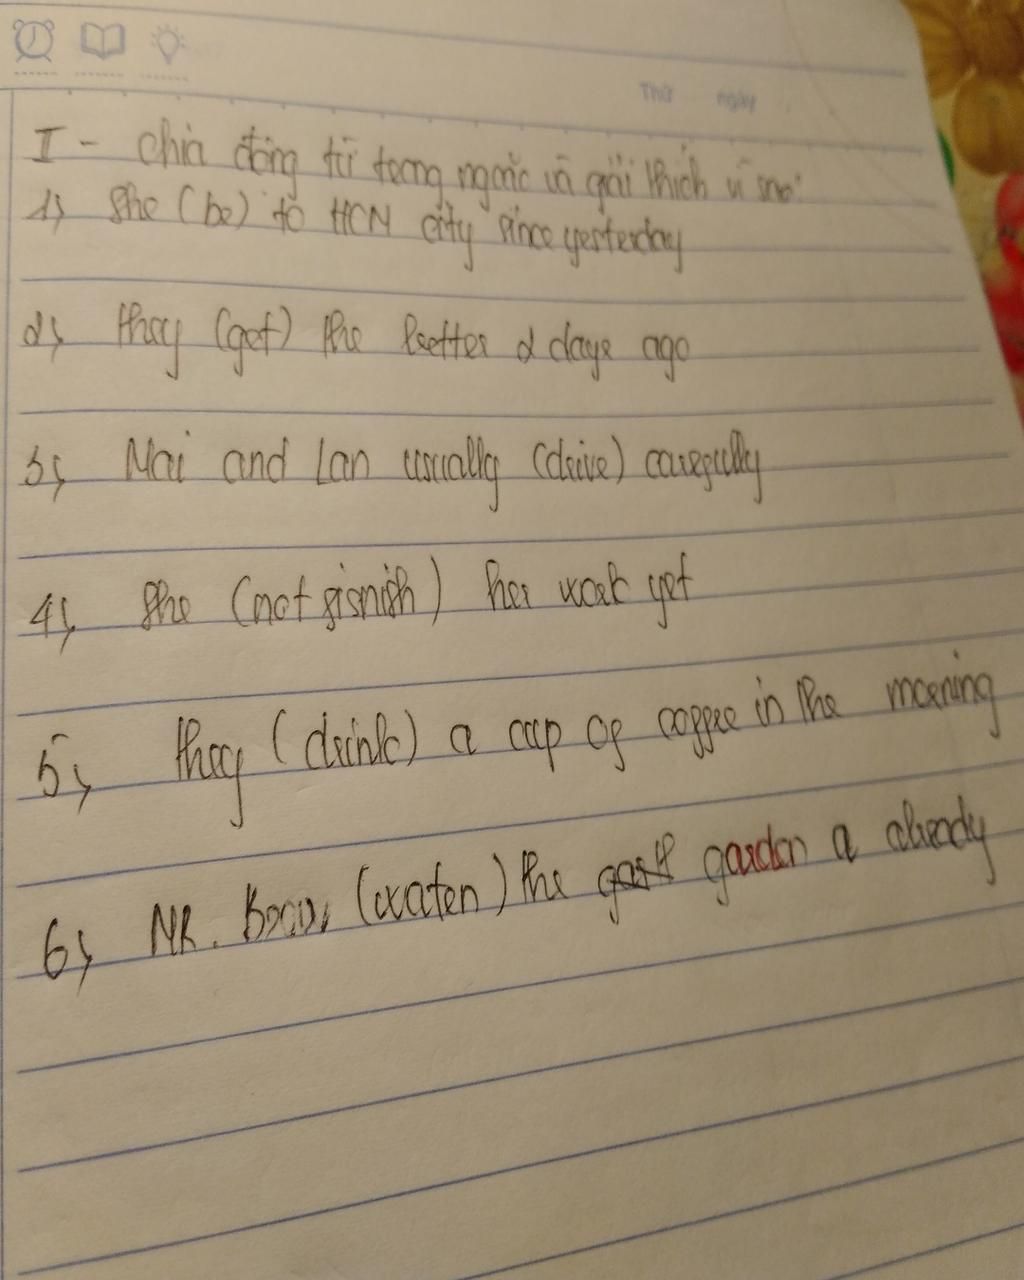 Thứ ngày
I - chia động từ trong ngoặc và giải thích vì sao:
1, She (be) to HCM city since yesterday
2, they (get) the letter 2 days ago
3, Mai and Lan usually (drive) carefully
4, She (not fisnish) her work yet
5, they (drink) a cup of coffee in the morning
6, MR. (waten) the garden a already